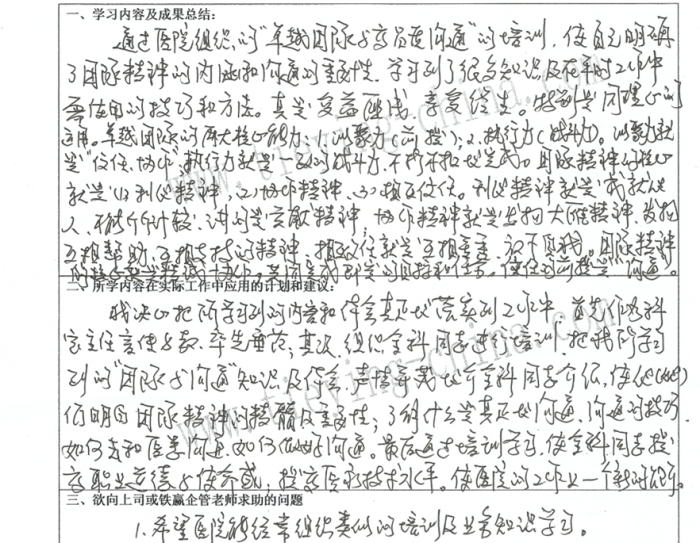 一、学习内容及成果总结:
通过医院组织的“卓越团队与高品质沟通”的培训,使自己明确
了团队精神的内涵和沟通的重要性,学习到了很多知识及在平时工作中
要使用的技巧和方法。真是受益匪浅,享受终生。特别是同理心的
运用。卓越团队的两大核心能力:1、凝聚力(前提);2、执行力(战斗力)。凝聚力就
是“信任、协作”,执行力就是一致的战斗力,不折不扣地完成。团队精神的核心
就是(1)利他精神,(2)协作精神,(3)相互信任。利他精神就是成就他
人、不能斤斤计较,讲的是贡献精神,协作精神就是发扬大雁精神,发扬
互相帮助、互相支持的精神,相互信任就是互相尊重,
共同完成 的目标和任务。信任的前提是“沟通”。
二、所学内容在实际工作中应用的计划和建议:
我决心把所学习到的内容和体会真正地落实到工作中,首先作为科
室主任言传身教、率先垂范;其次,组织全科同志进行培训,把我所学习
到的“团队与沟通”知识及体会,声情并茂地介全科同志介绍,使他(她)
们明白团队精神的精髓及重要性;了解什么是真正地沟通,沟通的技巧,
如何去和医患沟通,如何做好沟通。最后通过培训学习,使全科同志提
高职业道德与使命感,提高医疗技术水平。使医院的工作上一个新的台阶。
三、欲向上司或铁赢企管老师求助的问题
1.希望医院能经常组织类似的培训及业务知识学习。
www.tieying-china.com
www.tieying-china.com